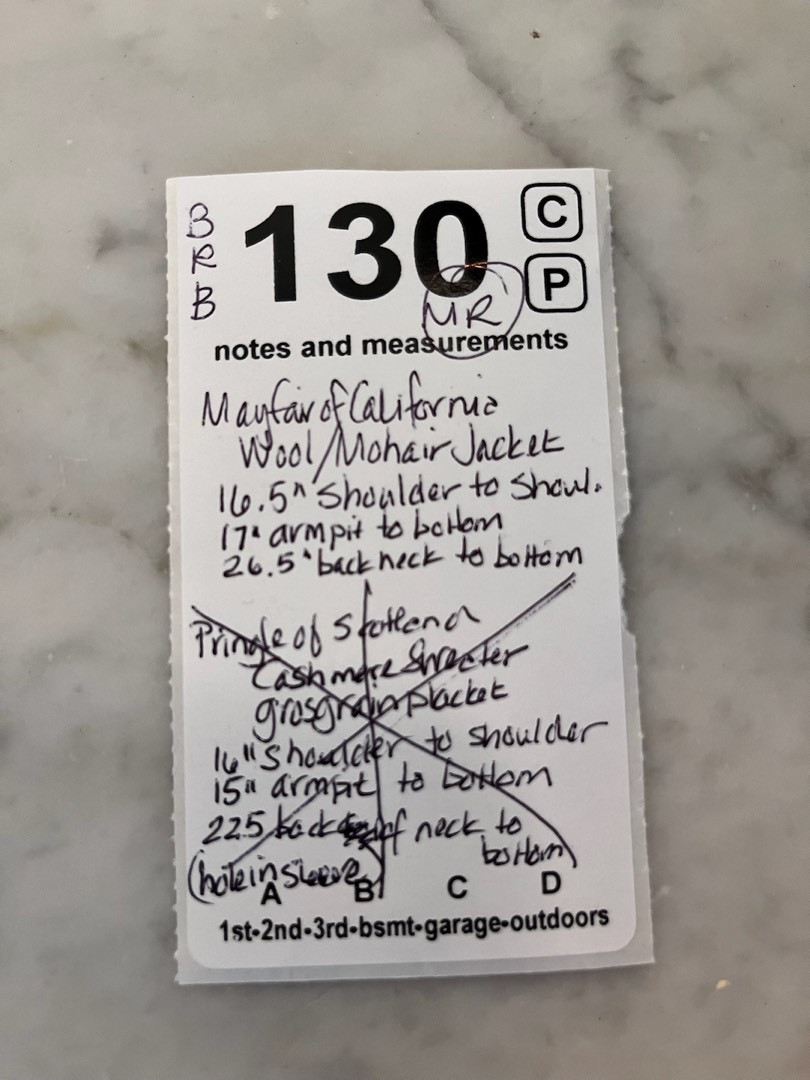 B
R
B
130
C
P
MR
notes and measurements
Mayfair of California
Wool/Mohair Jacket
16.5" Shoulder to Shoul.
17" armpit to bottom
26.5" back neck to bottom
Pringle of Scotland
Cashmere Sweater
grosgrain placket
16" shoulder to shoulder
15" armpit to bottom
22.5 back of neck to
bottom
(hole in sleeve)
A B C D
1st•2nd•3rd•bsmt•garage•outdoors